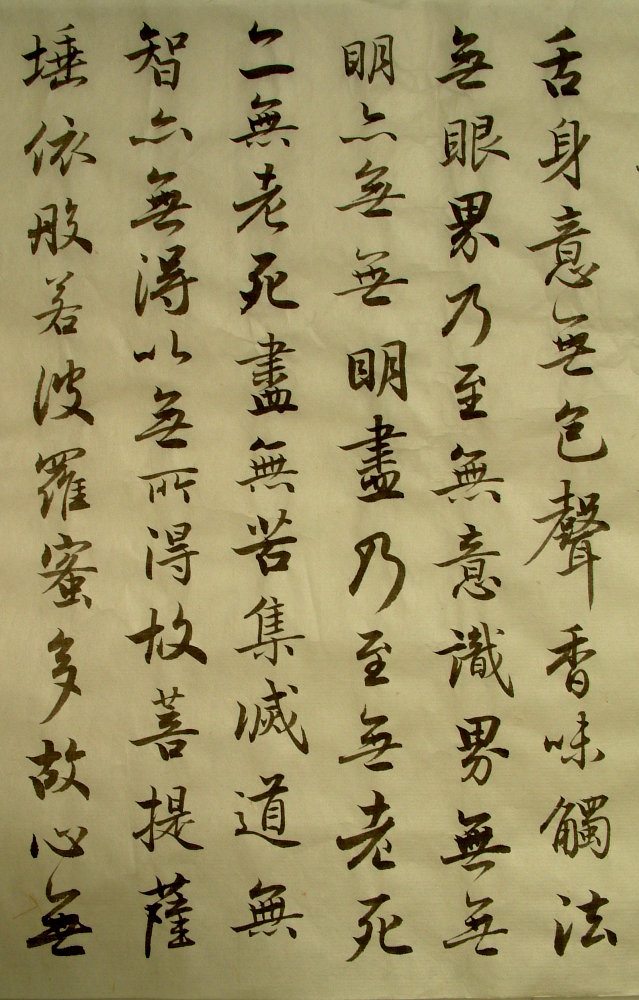 舌身意無色聲香味觸法
無眼界乃至無意識界無無
明亦無無明盡乃至無老死
亦無老死盡無苦集滅道無
智亦無得以無所得故菩提薩
埵依般若波羅蜜多故心無